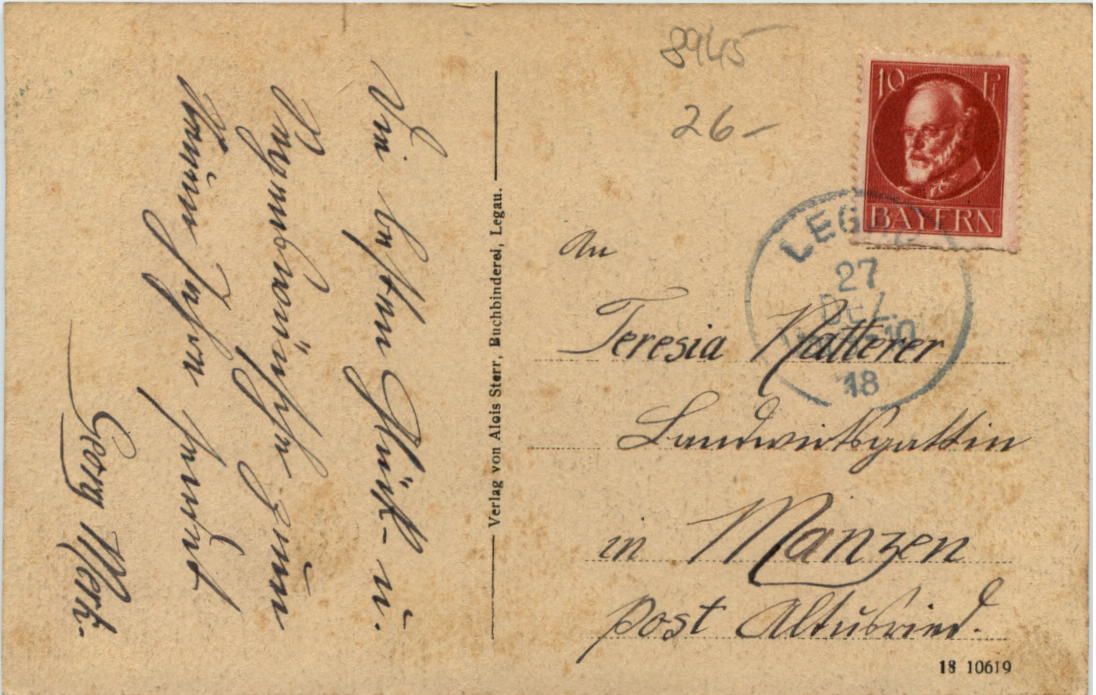 Die besten Glück- u.
Segenswünsche zum
neuen Jahre sendet
Georg Merk.
Verlag von Alois Sterr, Buchbinderei, Legau.
8945
26-
10 Pf
BAYERN
LEGAU
27
DEZ.
18
An
Teresia Natterer
Landwirtsgattin
in Manzen
Post Altusried.
18 10619